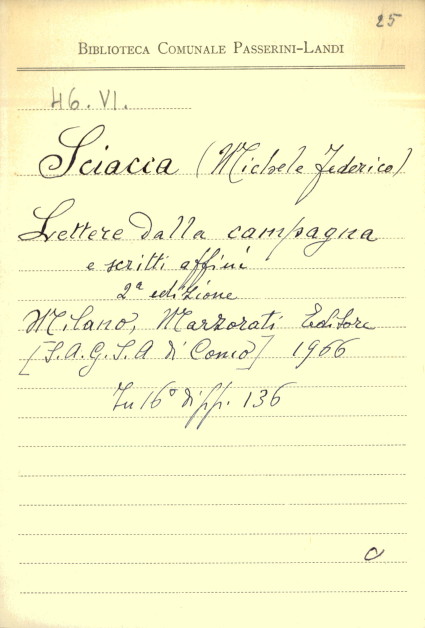 25
BIBLIOTECA COMUNALE PASSERINI-LANDI
46. VI.
Sciacca (Michele Federico)
Lettere dalla campagna
e scritti affini
2ª edizione
Milano, Marzorati Editore
[S.A.G.S.A di Como] 1966
In 16° di pp. 136